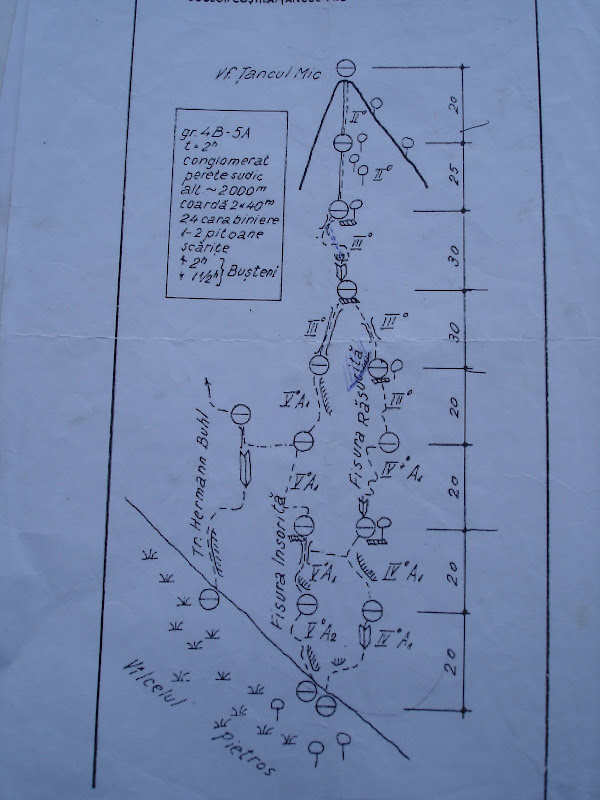 Vf. Țancul Mic
gr. 4B-5A
t = 2h
conglomerat
perete sudic
alt ~ 2000m
coardă 2×40m
24 carabiniere
1-2 pitoane
scărițe
2h
1 1/2h } Bușteni
II°
II°
III°
III°
III°
III°
V°A1
IV+°A1
V°A1
V A1
IV°A1
V°A2
IV°A1
Tr. Hermann Buhl
Fisura Însorită
Fisura Răsucită
Vîlcelul
Pietros
20
25
30
30
20
20
20
20